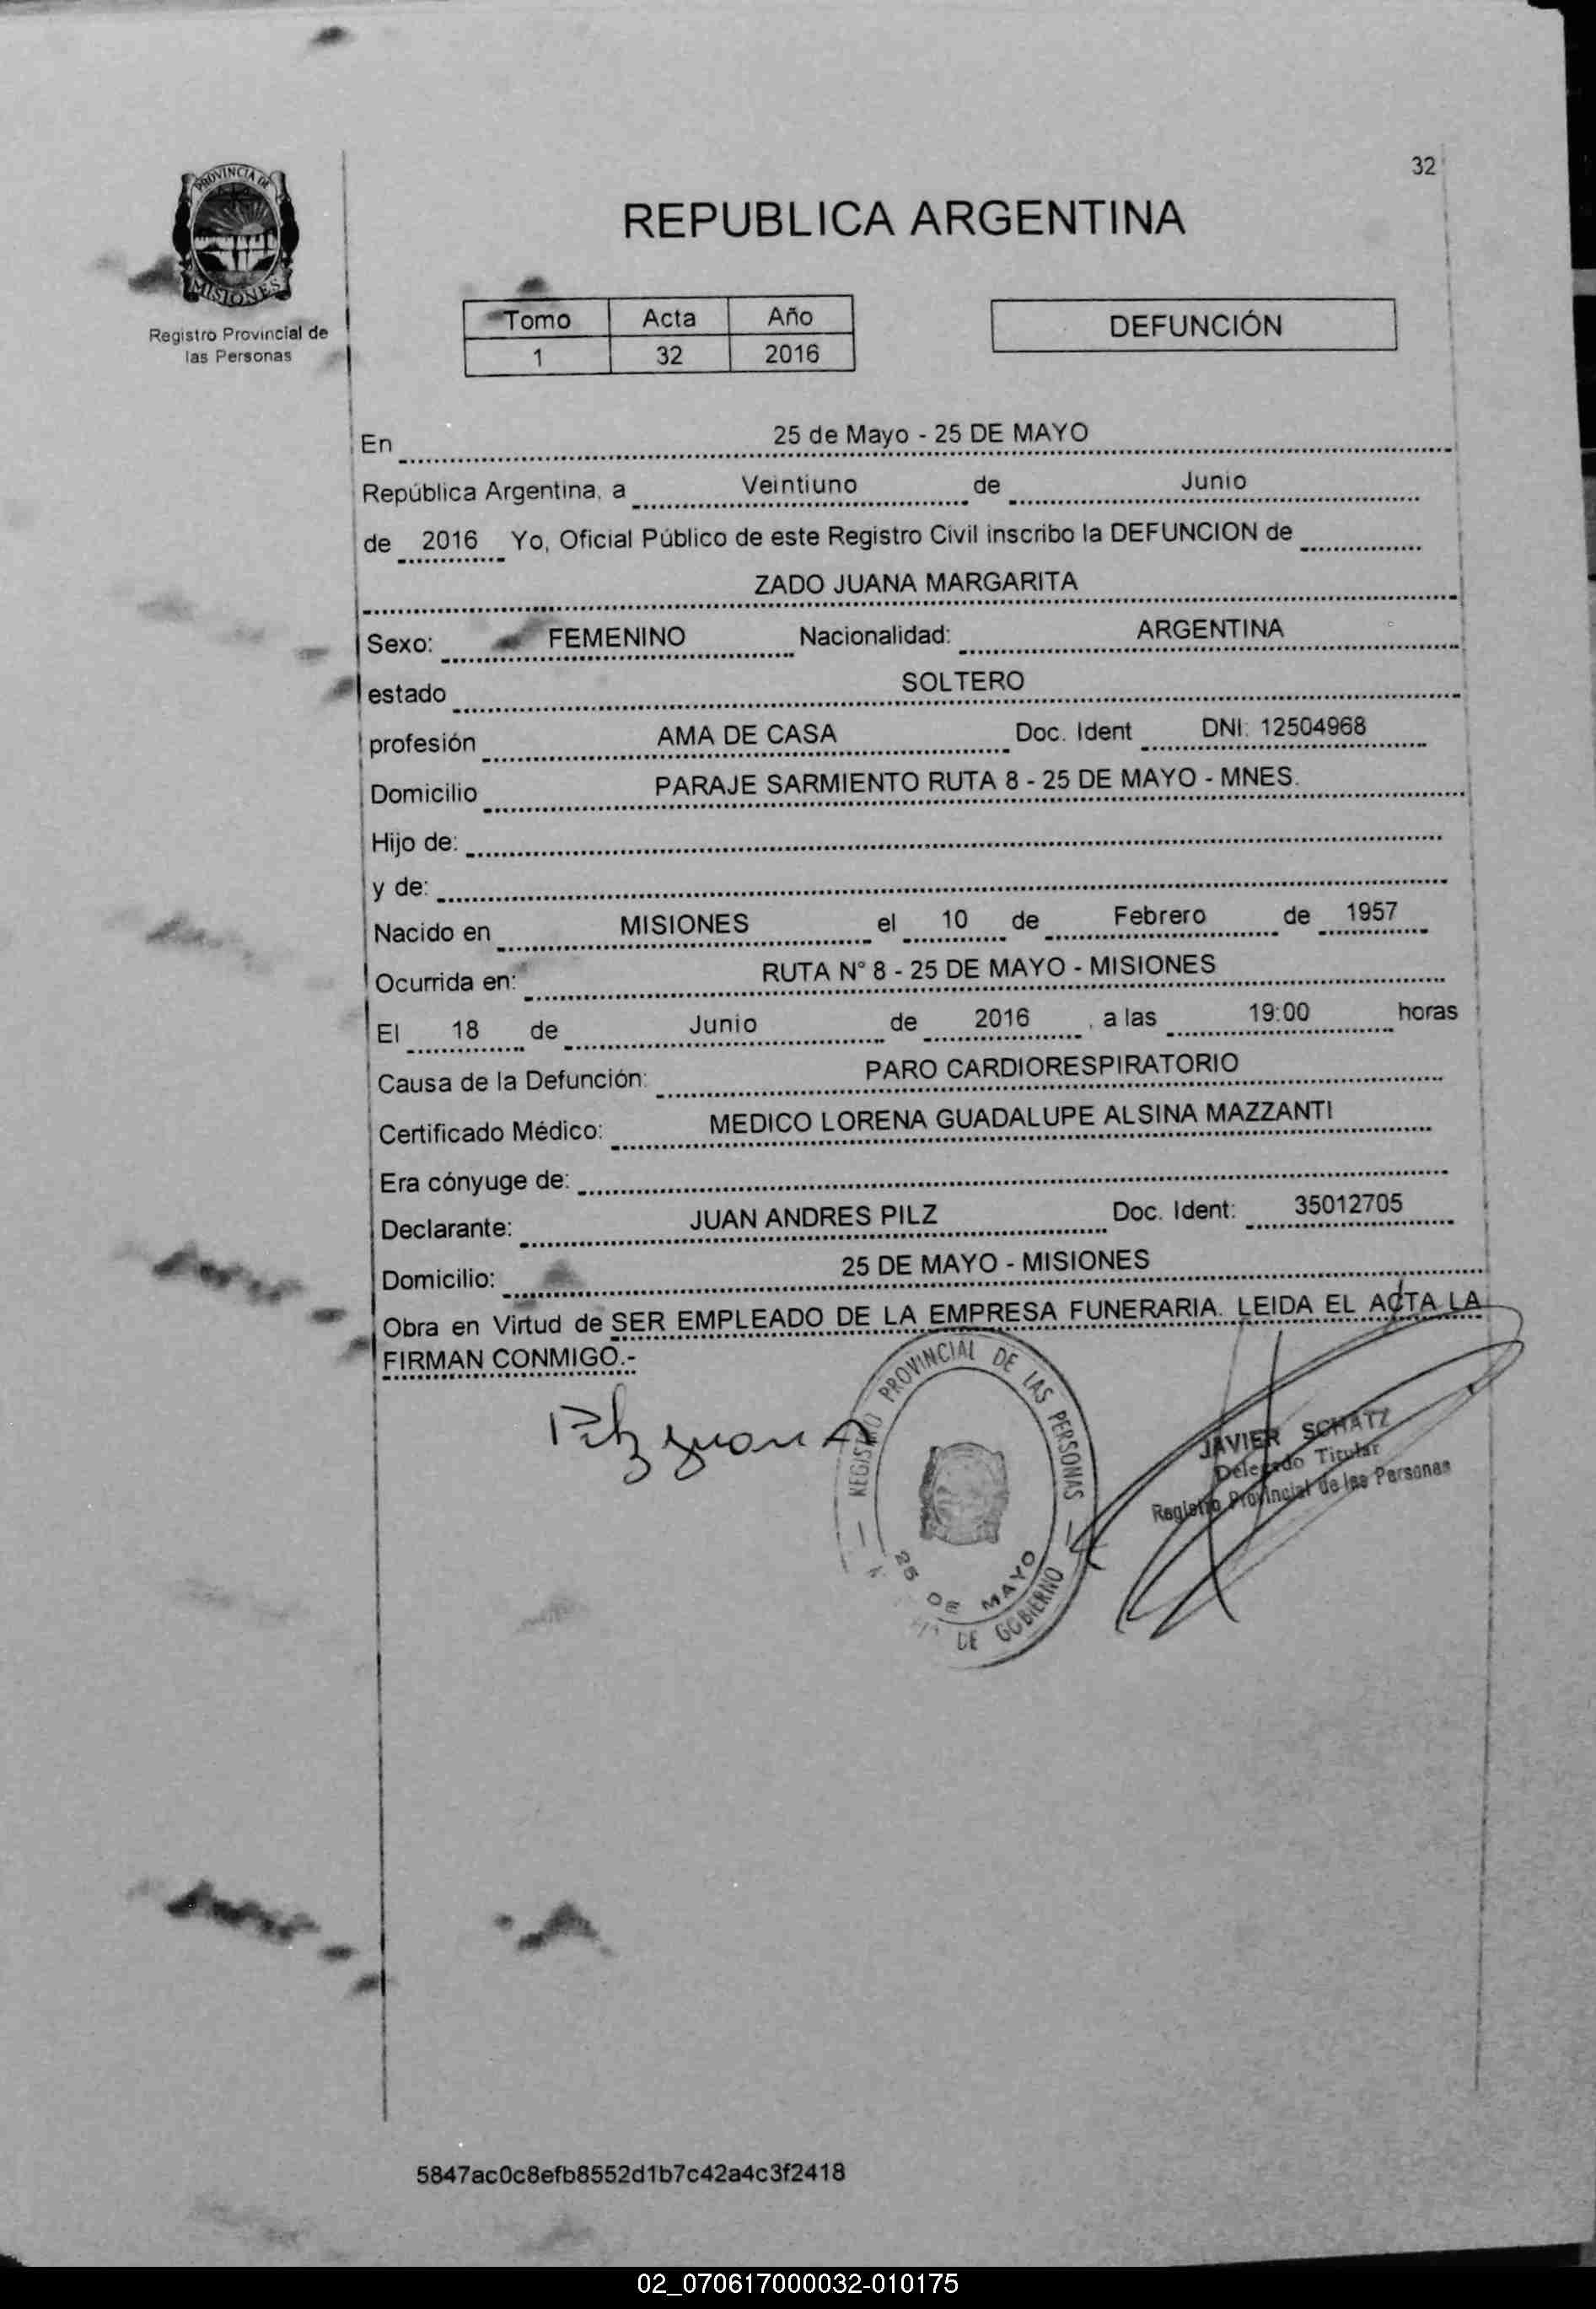 32
PROVINCIA DE
MISIONES
Registro Provincial de
las Personas
REPUBLICA ARGENTINA
Tomo Acta Año
1 32 2016
DEFUNCIÓN
En 25 de Mayo - 25 DE MAYO
República Argentina, a Veintiuno de Junio
de 2016 Yo, Oficial Público de este Registro Civil inscribo la DEFUNCION de
ZADO JUANA MARGARITA
Sexo: FEMENINO Nacionalidad: ARGENTINA
estado SOLTERO
profesión AMA DE CASA Doc. Ident DNI: 12504968
Domicilio PARAJE SARMIENTO RUTA 8 - 25 DE MAYO - MNES.
Hijo de:
y de:
Nacido en MISIONES el 10 de Febrero de 1957
Ocurrida en: RUTA N° 8 - 25 DE MAYO - MISIONES
El 18 de Junio de 2016 , a las 19:00 horas
Causa de la Defunción: PARO CARDIORESPIRATORIO
Certificado Médico: MEDICO LORENA GUADALUPE ALSINA MAZZANTI
Era cónyuge de:
Declarante: JUAN ANDRES PILZ Doc. Ident: 35012705
Domicilio: 25 DE MAYO - MISIONES
Obra en Virtud de SER EMPLEADO DE LA EMPRESA FUNERARIA. LEIDA EL ACTA LA
FIRMAN CONMIGO.-
Pilz Juan A
REGISTRO PROVINCIAL DE LAS PERSONAS
25 DE MAYO
DE GOBIERNO
JAVIER SCHATZ
Delegado Titular
Registro Provincial de las Personas
5847ac0c8efb8552d1b7c42a4c3f2418
02_070617000032-010175